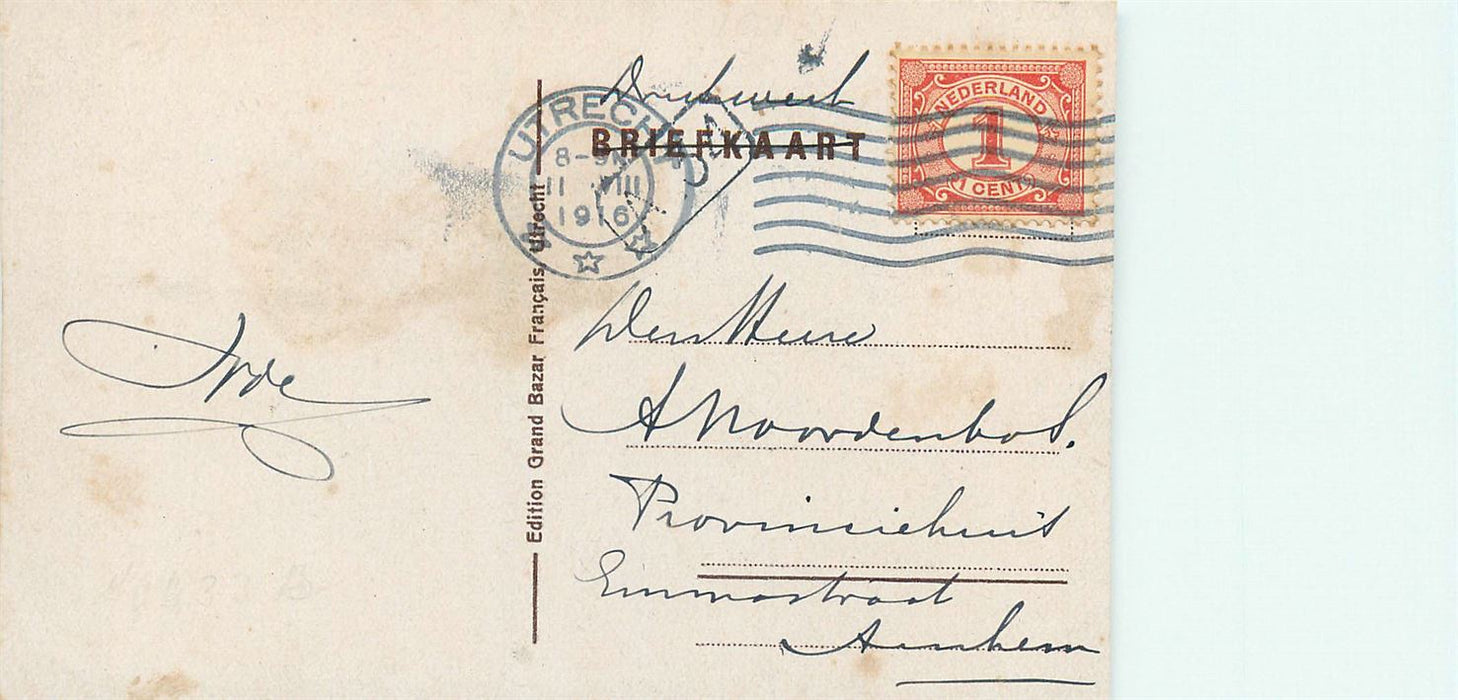 Drukwerk
BRIEFKAART
NEDERLAND
1
1 CENT
UTRECHT
8-9N
11 VIII
1916
Edition Grand Bazar Français, Utrecht
Den Heere
A Noordenbos.
Provinciehuis
Emmastraat
Arnhem